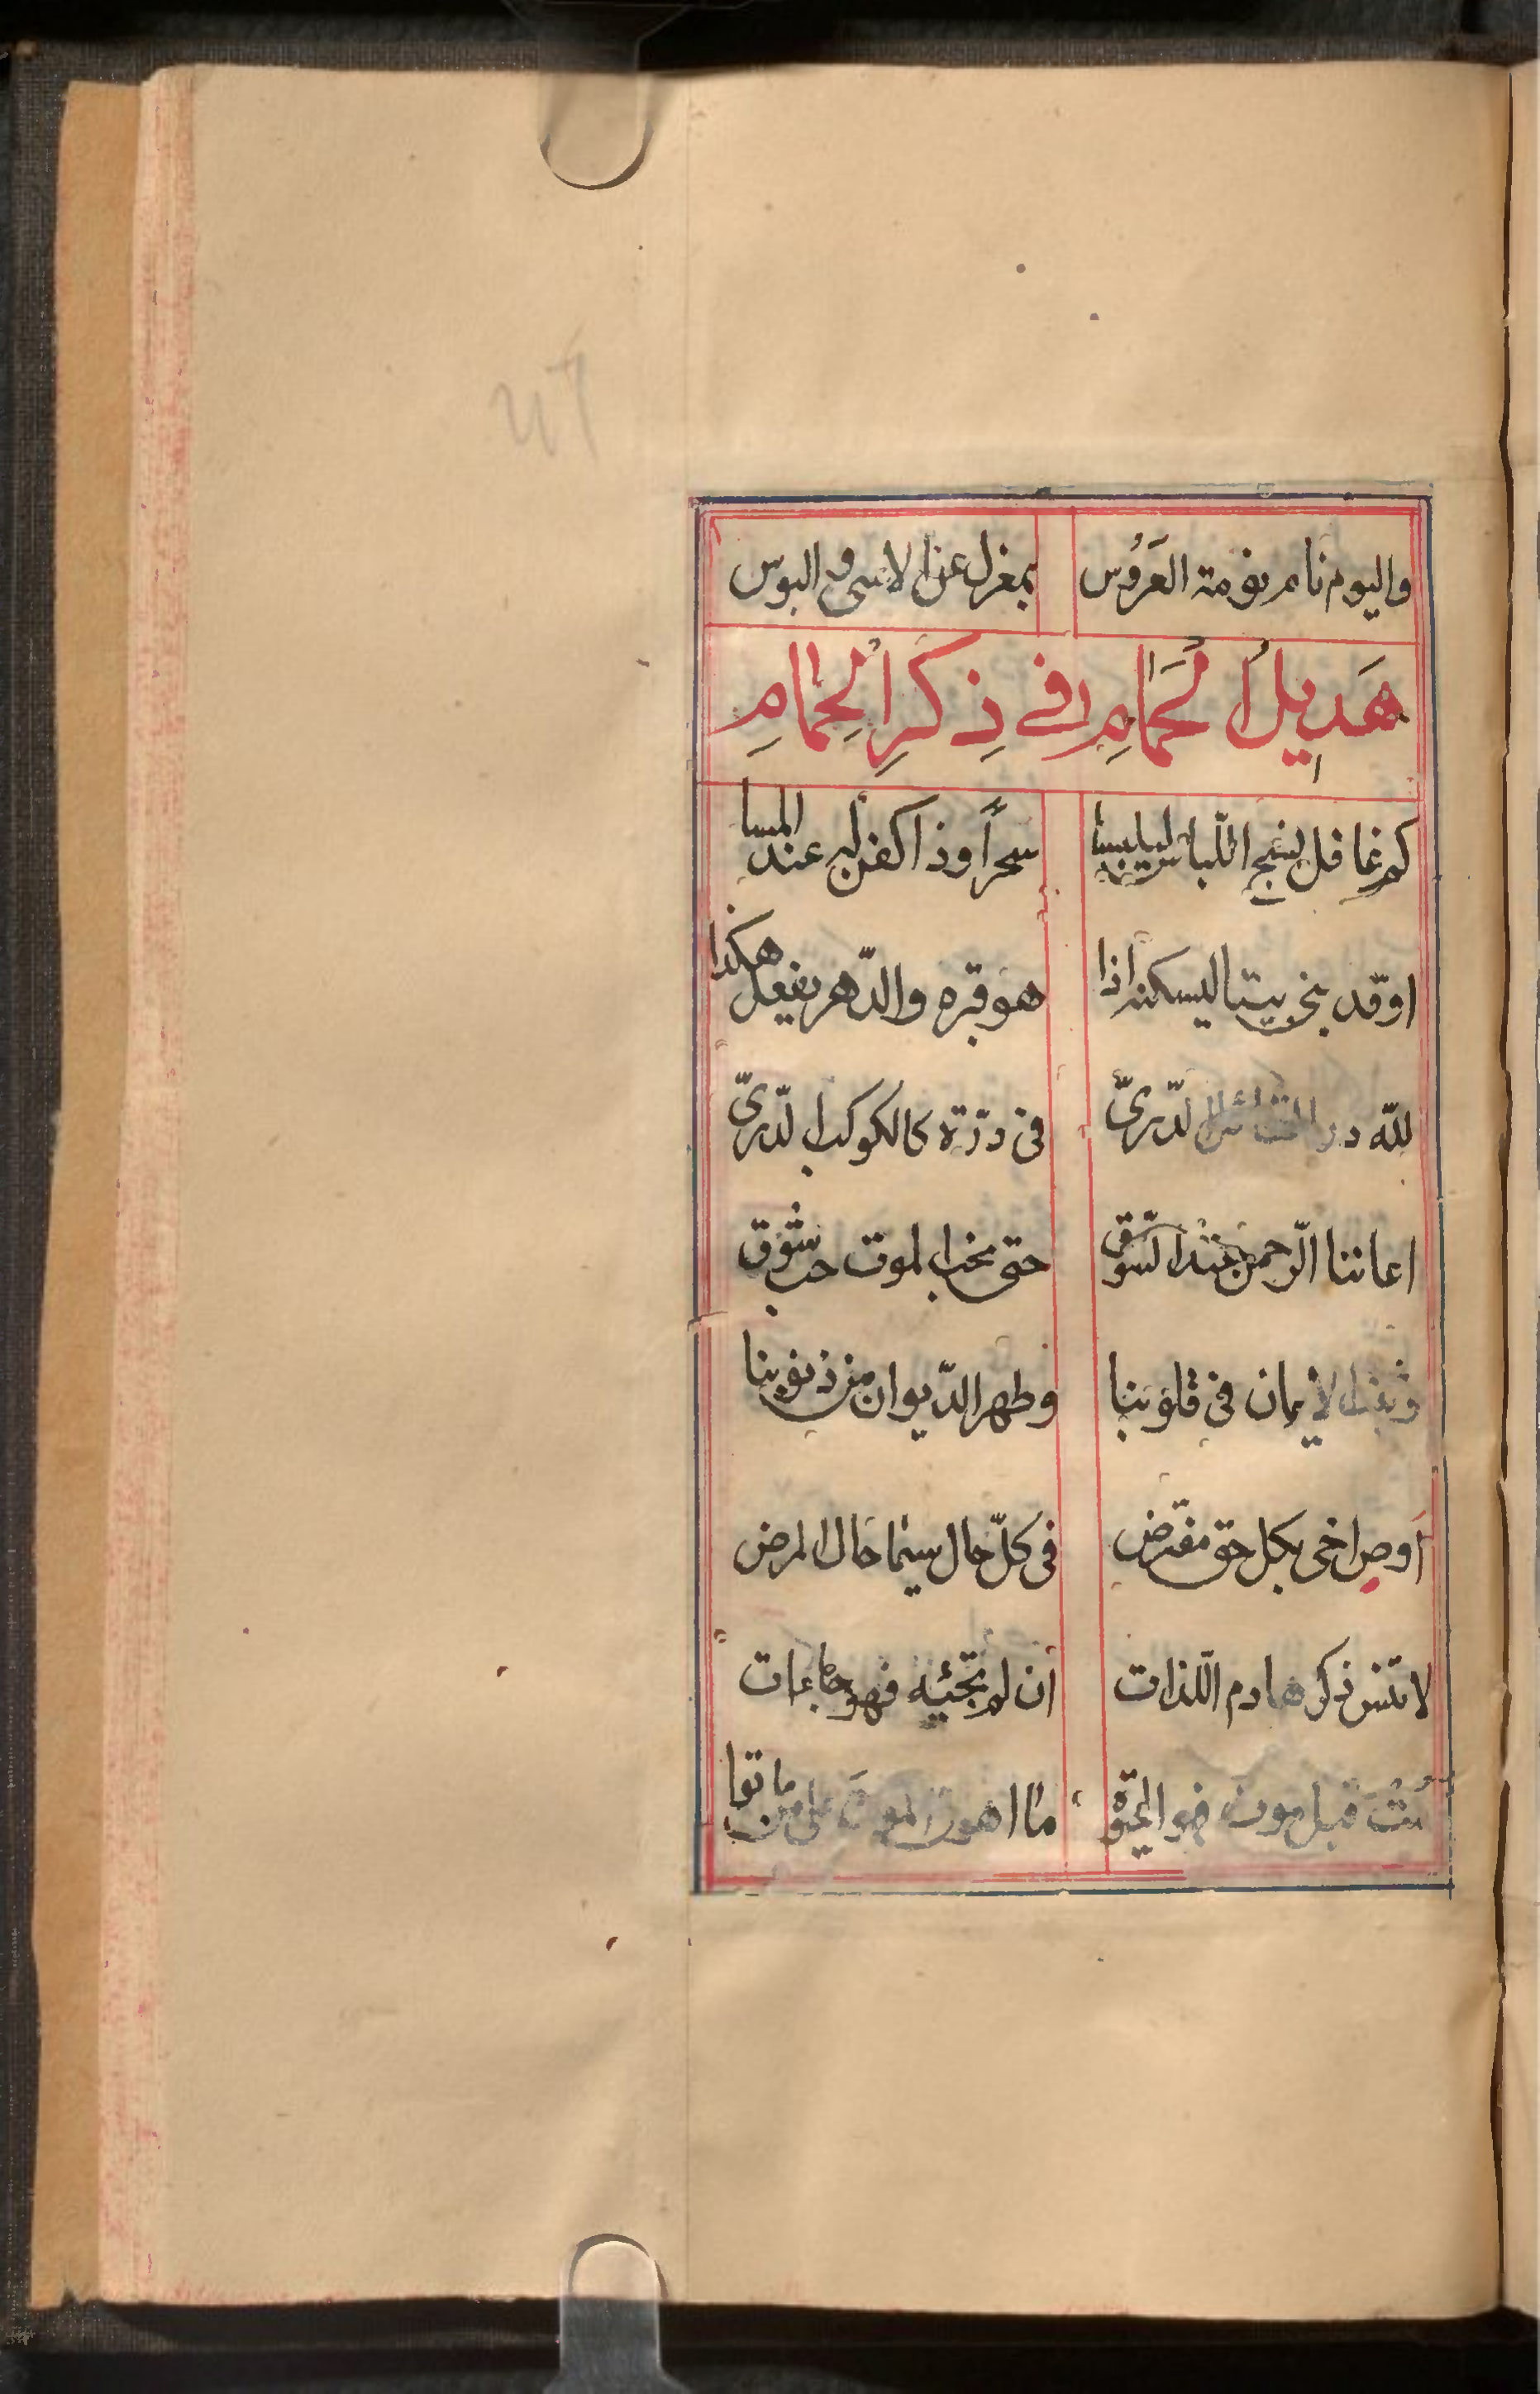 واليوم نام نومة العَرُوس بمغزل عن الاسى والبوس
هَدِيلُ الْحَمَامِ فِي ذِكْرِ الْحِمَامِ
كم غافل نسج اللّباس ليلبسا سحراً وذا كفن له عند المسا
او قد بنى بيتا ليسكنه اذا هو قبره والدّهر يفعل هكذا
لله در الدّريّ فى درّة كالكوكب الدّريّ
اعاننا الرّحمن عند السّوق حتى نحب الموت حب شوق
الايمان فى قلوبنا وطهر الدّيوان من ذنوبنا
اوص اخى بكل حق مفترض فى كلّ حال سيما حال المرض
لا تنس ذكر هادم اللّذات ان لم تجئيه فهو جاء ات
مُتْ قبل موت فهو الحيوة ما اهون الموت على من ماتوا